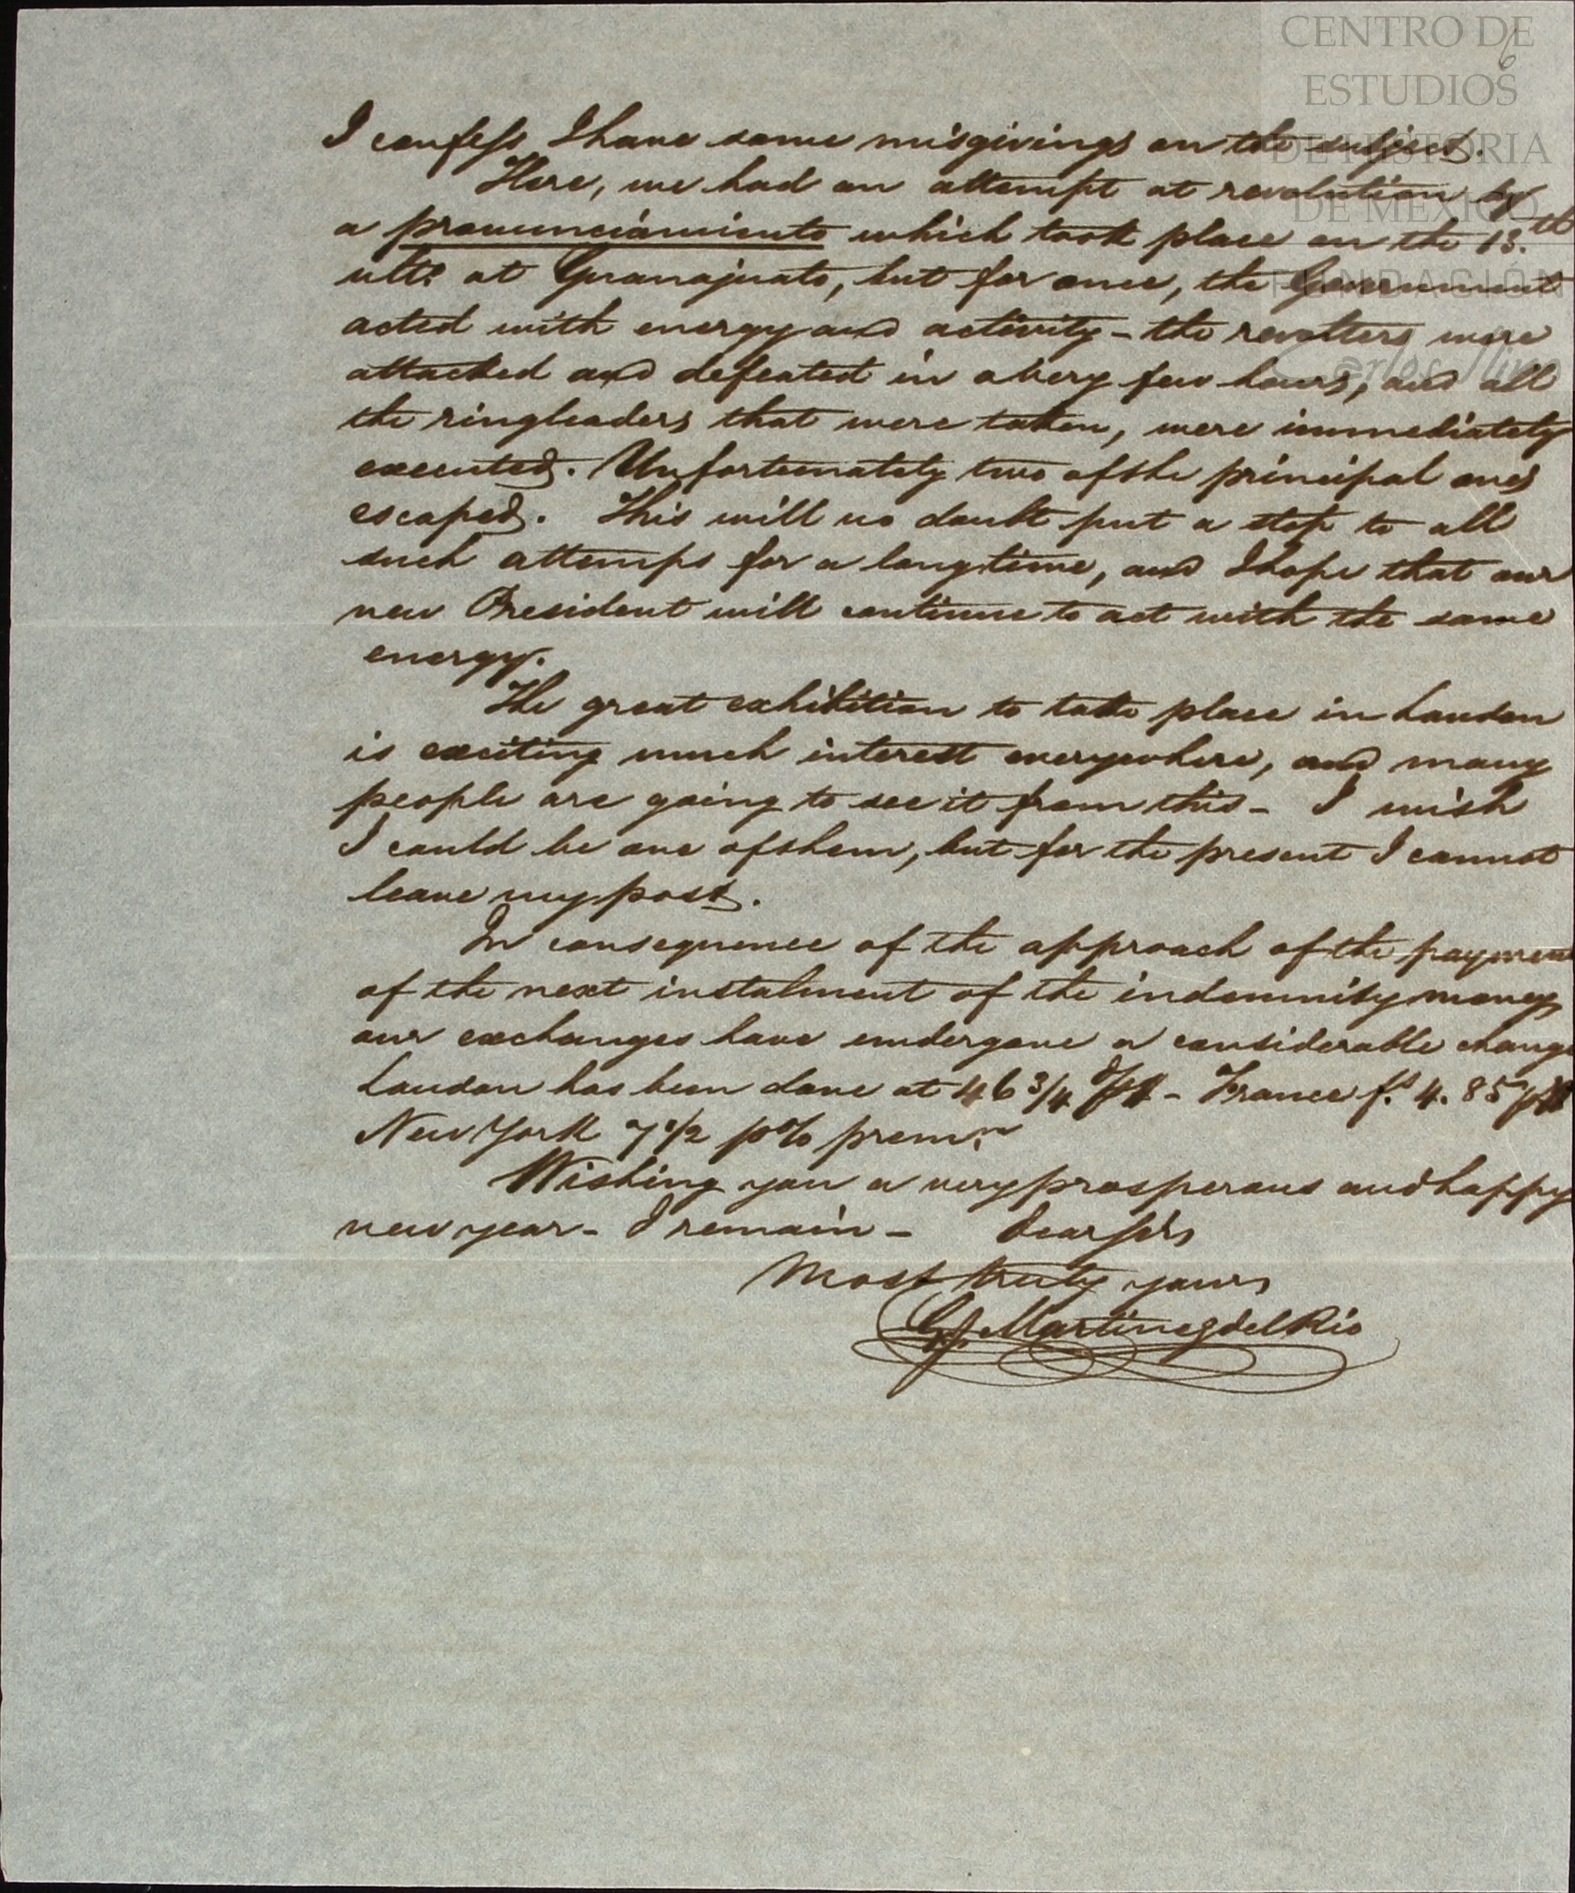 CENTRO DE
ESTUDIOS
DE HISTORIA
DE MÉXICO
FUNDACIÓN
Carlos Slim
6
I confess I have some misgivings on the subject.
Here, we had an attempt at revolution by
a pronunciamiento which took place on the 13.th
ulto. at Guanajuato, but for once, the Government
acted with energy and activity - the revolters were
attacked and defeated in a very few hours, and all
the ringleaders that were taken, were immediately
executed. Unfortunately two of the principal ones
escaped. This will no doubt put a stop to all
such attemps for a long time, and I hope that our
new President will continue to act with the same
energy.
The great exhibition to take place in London
is exciting much interest everywhere, and many
people are going to see it from this - I wish
I could be one of them, but for the present I cannot
leave my post.
In consequence of the approach of the payment
of the next instalment of the indemnity money
our exchanges have undergone a considerable change
London has been done at 46 3/4 - France f.s 4.85
New York 7 1/2 p% prem.m
Wishing you a very prosperous and happy
new year - I remain - Dear Sirs
Most truly yours
G J. Martinez del Rio